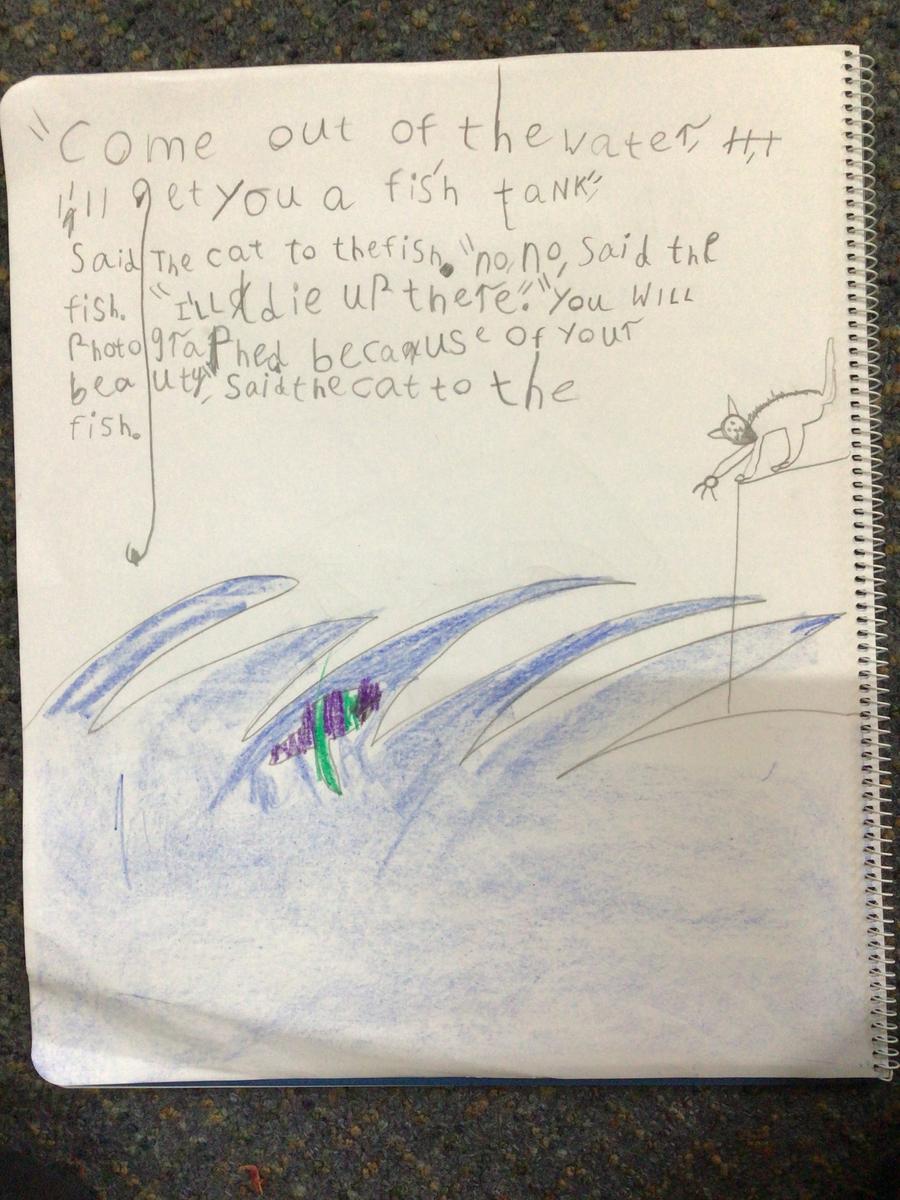 "Come out of the water,
I'll get you a fish tank"
Said The cat to the fish. "no, no, Said the
fish. "I'LL die up there." "You WILL
Photographed because of your
beauty," Said the cat to the
fish.